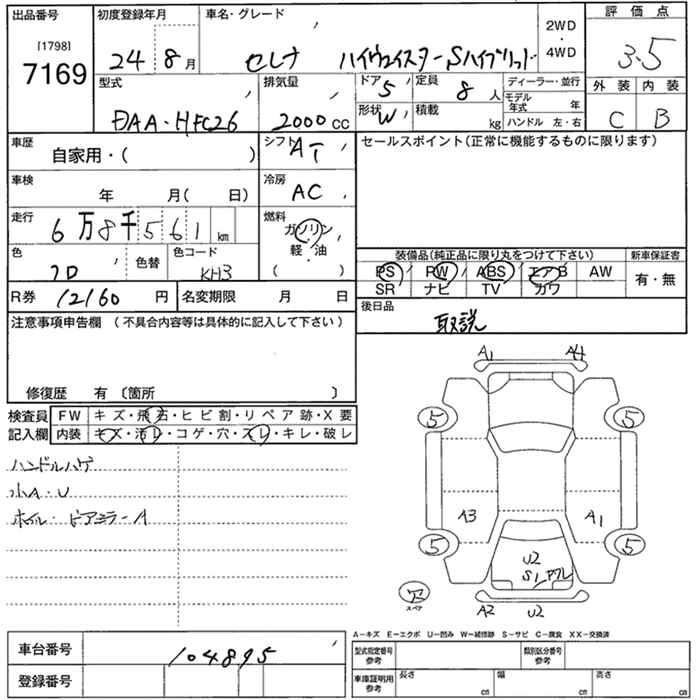 出品番号 初度登録年月 車名・グレード 2WD ・ 4WD 評価点
[1798]
7169 24年8月 セレナ ハイウェイスターSハイブリッド 3.5
型式 排気量 ドア 5 定員 8人 ディーラー・並行 外装 内装
DAA-HFC26 2000cc 形状 W 積載 kg モデル年式 年 C B
ハンドル 左・右
車歴 シフト AT セールスポイント(正常に機能するものに限ります)
自家用・( )
車検 年 月( 日) 冷房 AC
走行 6万8千561km 燃料 ガソリン
軽・油
( )
色 色替 色コード KH3 装備品(純正品に限り丸をつけて下さい) 新車保証書
PS PW ABS エアB AW 有・無
SR ナビ TV カワ
R券 12160円 名変期限 月 日 後日品
取説
注意事項申告欄(不具合内容等は具体的に記入して下さい)
修復歴 有〔箇所 〕
検査員記入欄 FW キズ・飛石・ヒビ割・リペア跡・X要
内装 キズ・汚レ・コゲ・穴・スレ・キレ・破レ
ハンドルハゲ
小A・U
ホイル・ドアミラーA
A1 A4
5 5
A3 A1
5 5
U2
S1
スペア
A2 U2
A-キズ E-エクボ U-凹み W-補修跡 S-サビ C-腐食 XX-交換済
車台番号 104895
登録番号
型式指定番号 参考 類別区分番号 参考
車庫証明用 参考 長さ cm 幅 cm 高さ cm